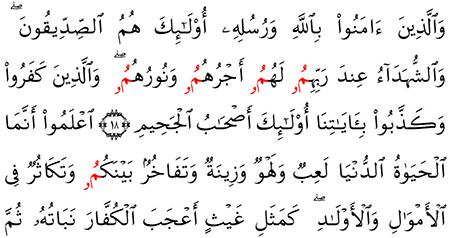 وَالَّذِينَ ءَامَنُوا۟ بِاللَّهِ وَرُسُلِهِۦ أُو۟لَـٰٓئِكَ هُمُ الصِّدِّيقُونَ ۖ
وَالشُّهَدَآءُ عِندَ رَبِّهِمُۥ لَهُمُۥٓ أَجْرُهُمُۥ وَنُورُهُمُۥ ۖ وَالَّذِينَ كَفَرُوا۟
وَكَذَّبُوا۟ بِـَٔايَـٰتِنَا أُو۟لَـٰٓئِكَ أَصْحَـٰبُ الْجَحِيمِ ١٨ اعْلَمُوٓا۟ أَنَّمَا
الْحَيَوٰةُ الدُّنْيَا لَعِبٌ وَلَهْوٌ وَزِينَةٌ وَتَفَاخُرٌۢ بَيْنَكُمُۥ وَتَكَاثُرٌ فِى
الْأَمْوَٰلِ وَالْأَوْلَـٰدِ ۖ كَمَثَلِ غَيْثٍ أَعْجَبَ الْكُفَّارَ نَبَاتُهُۥ ثُمَّ